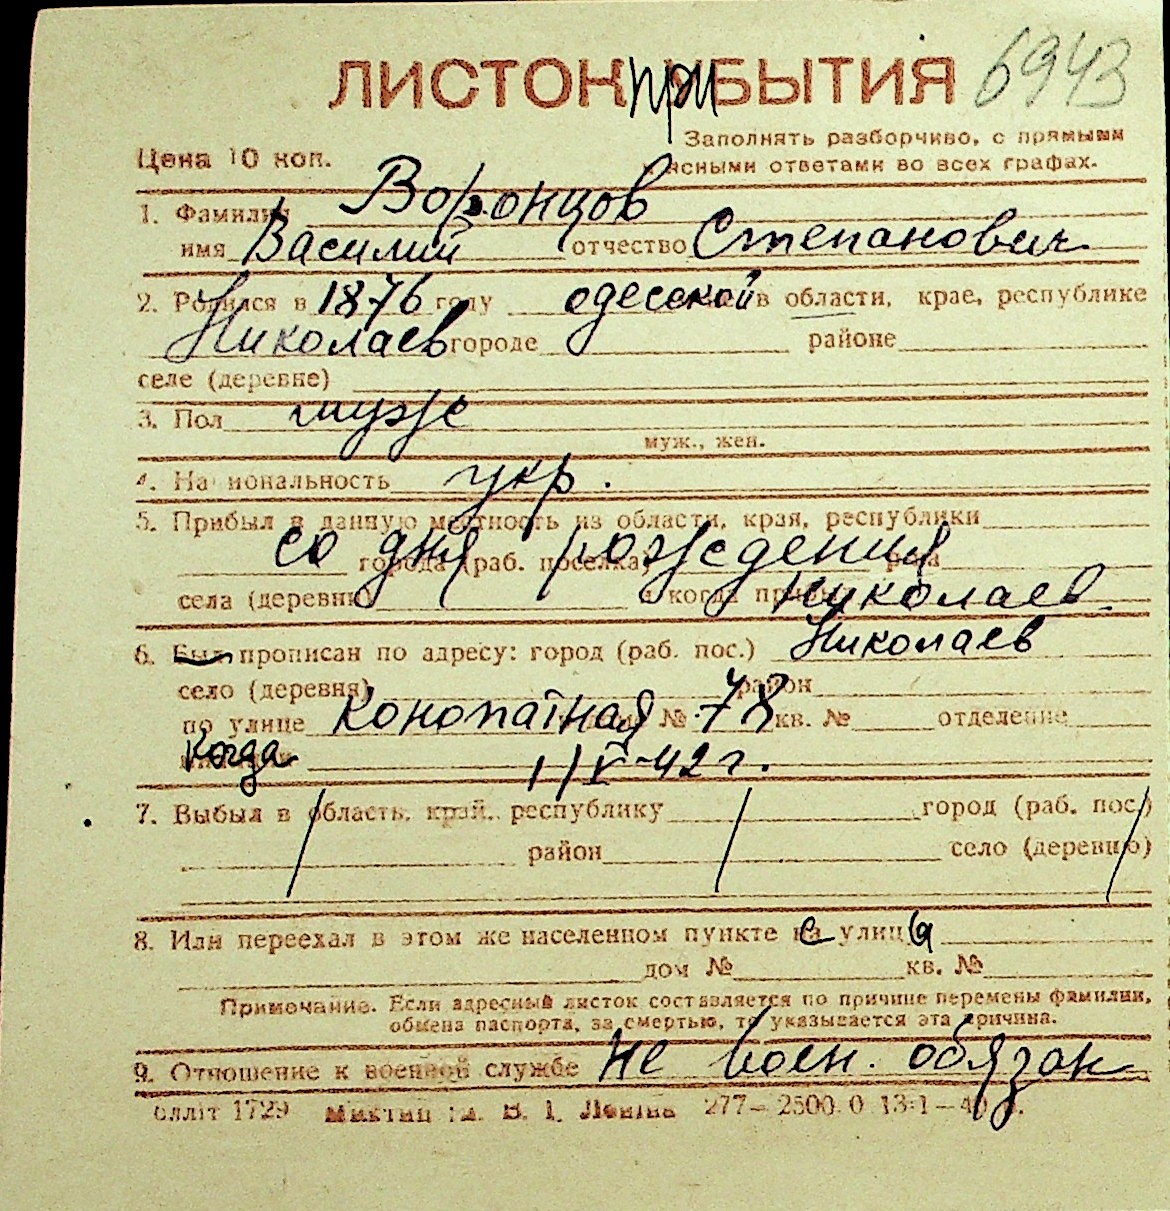 ЛИСТОК ПРИБЫТИЯ 6943
Заполнять разборчиво, с прямыми
Цена 10 коп. ясными ответами во всех графах.
1. Фамилия Воронцов
имя Василий отчество Степанович
2. Родился в 1876 году одесской в области, крае, республике
Николаев городе районе
селе (деревне)
3. Пол муж
муж., жен.
4. Национальность укр.
5. Прибыл в данную местность из области, края, республики
со дня рождения города (раб. поселка)
села (деревни) и когда Николаев
6. Был прописан по адресу: город (раб. пос.) Николаев
село (деревня) район
по улице Конопатная № 78 кв. № отделение
когда 1/V-42 г.
7. Выбыл в область, край, республику город (раб. пос.)
район село (деревню)
8. Или переехал в этом же населенном пункте с улицы
дом № кв. №
Примечание. Если адресный листок составляется по причине перемены фамилии,
обмена паспорта, за смертью, то указывается эта причина.
9. Отношение к военной службе Не воен. обязан
олліт 1729 В. І. Леніна 277–2500.0